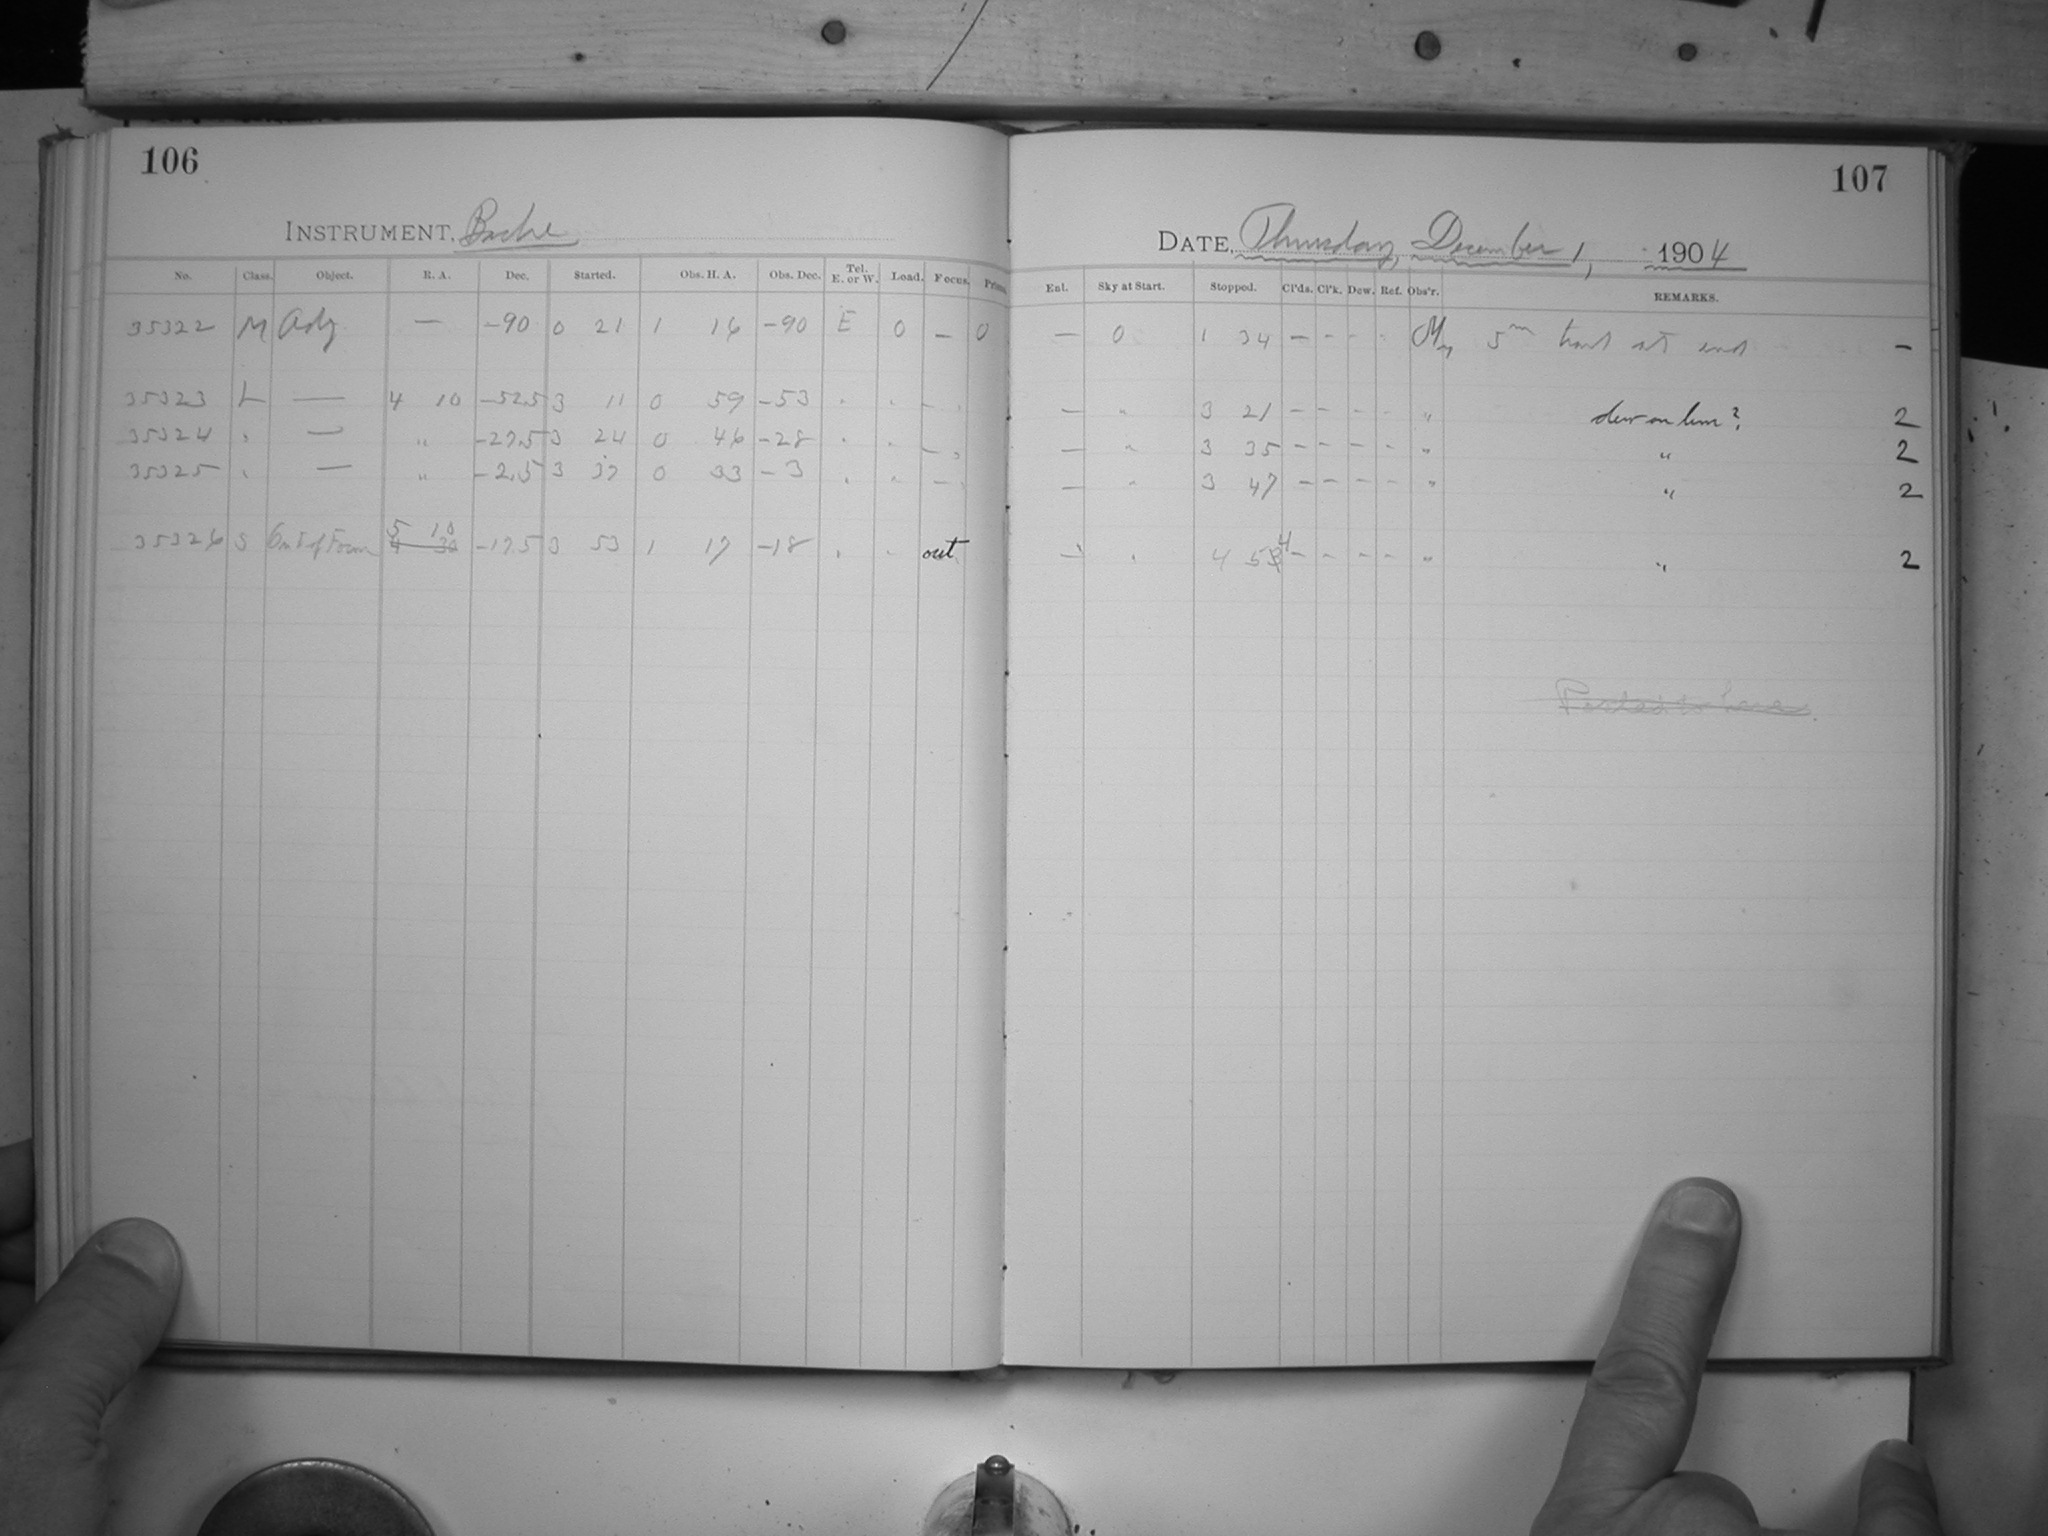 106
INSTRUMENT, Bache
No. Class. Object. R. A. Dec. Started. Obs. H. A. Obs. Dec. Tel. E. or W. Load. Focus. Prism
35322 M Adj — -90 0 21 1 16 -90 E 0 — 0
35323 L — 4 10 -52.5 3 11 0 59 -53 " " — "
35324 " — " -27.5 3 24 0 46 -28 " " — "
35325 " — " -2.5 3 37 0 33 -3 " " — "
35326 S Out of Focus 5 10 4 30 -17.5 3 53 1 17 -18 " " out "
107
DATE, Thursday, December 1, 1904
Ent. Sky at Start. Stopped. Cl'ds. Cl'k. Dew. Ref. Obs'r. REMARKS.
— 0 1 34 — — — - 5m trail at end —
— " 3 21 — — — — " dew on lens? 2
— " 3 35 — — — — " " 2
— " 3 47 — — — — " " 2
— " 4 53 4 — — — — " " 2